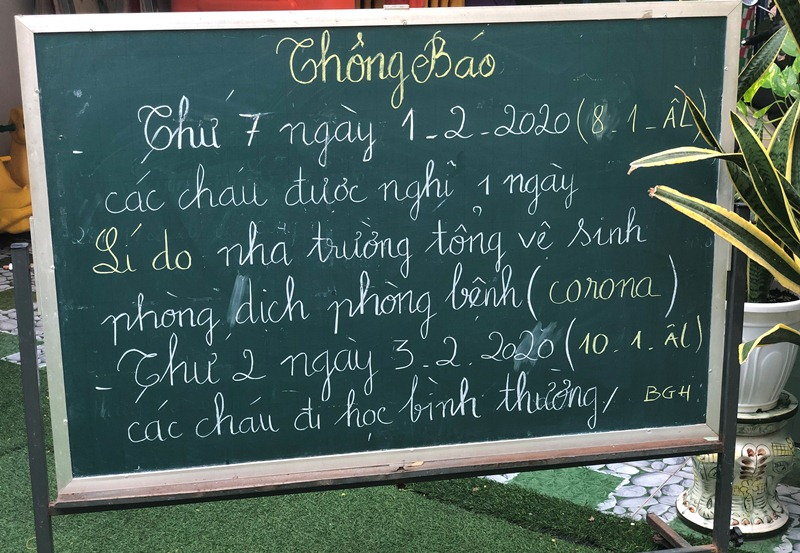 Thông Báo
- Thứ 7 ngày 1-2-2020 (8-1-ÂL)
các cháu được nghỉ 1 ngày
Lí do nhà trường tổng vệ sinh
phòng dịch phòng bệnh (corona)
- Thứ 2 ngày 3-2-2020 (10-1-ÂL)
các cháu đi học bình thường/
BGH